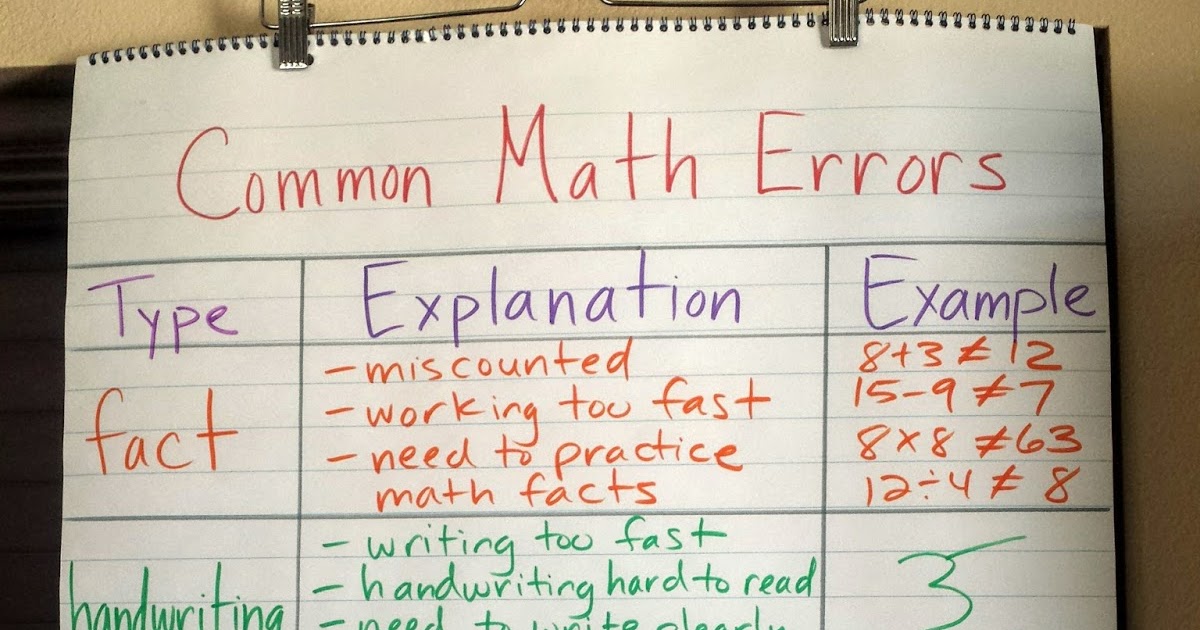 Common Math Errors
Type Explanation Example
fact
- miscounted
- working too fast
- need to practice
math facts
8+3 ≠ 12
15-9 ≠ 7
8×8 ≠ 63
12÷4 ≠ 8
handwriting
- writing too fast
- handwriting hard to read
- need to write clearly